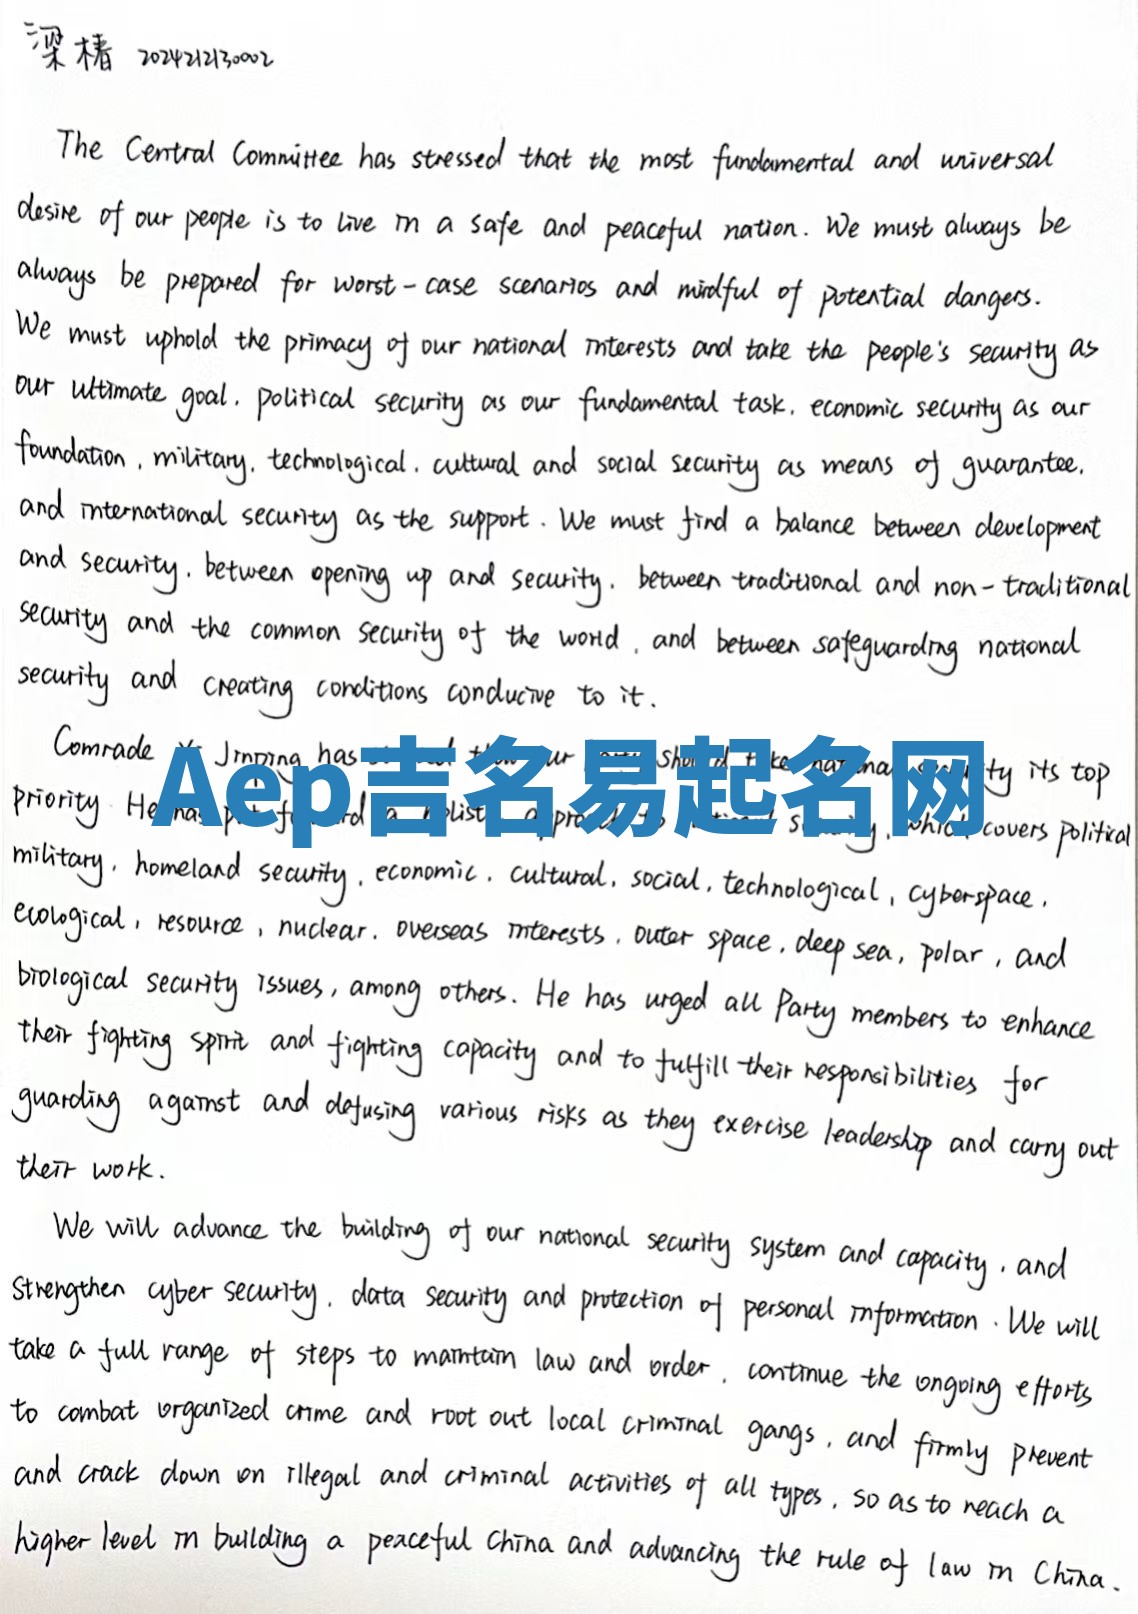 梁椿 2024212130002
The Central Committee has stressed that the most fundamental and universal
desire of our people is to live in a safe and peaceful nation. We must always be
always be prepared for worst-case scenarios and mindful of potential dangers.
We must uphold the primacy of our national interests and take the people's security as
our ultimate goal, political security as our fundamental task, economic security as our
foundation, military, technological, cultural and social security as means of guarantee,
and international security as the support. We must find a balance between development
and security, between opening up and security, between traditional and non-traditional
security and the common security of the world, and between safeguarding national
security and creating conditions conducive to it.
Comrade Xi Jinping has that our should take national security its top
priority He has put forward a holistic approach to national security, which covers political
Aep吉名易起名网
military, homeland security, economic, cultural, social, technological, cyberspace,
ecological, resource, nuclear, overseas interests, outer space, deep sea, polar, and
biological security issues, among others. He has urged all Party members to enhance
their fighting spirit and fighting capacity and to fulfill their responsibilities for
guarding against and defusing various risks as they exercise leadership and carry out
their work.
We will advance the building of our national security system and capacity, and
strengthen cyber security, data security and protection of personal information. We will
take a full range of steps to maintain law and order, continue the ongoing efforts
to combat organized crime and root out local criminal gangs, and firmly prevent
and crack down on illegal and criminal activities of all types, so as to reach a
higher level in building a peaceful China and advancing the rule of law in China.